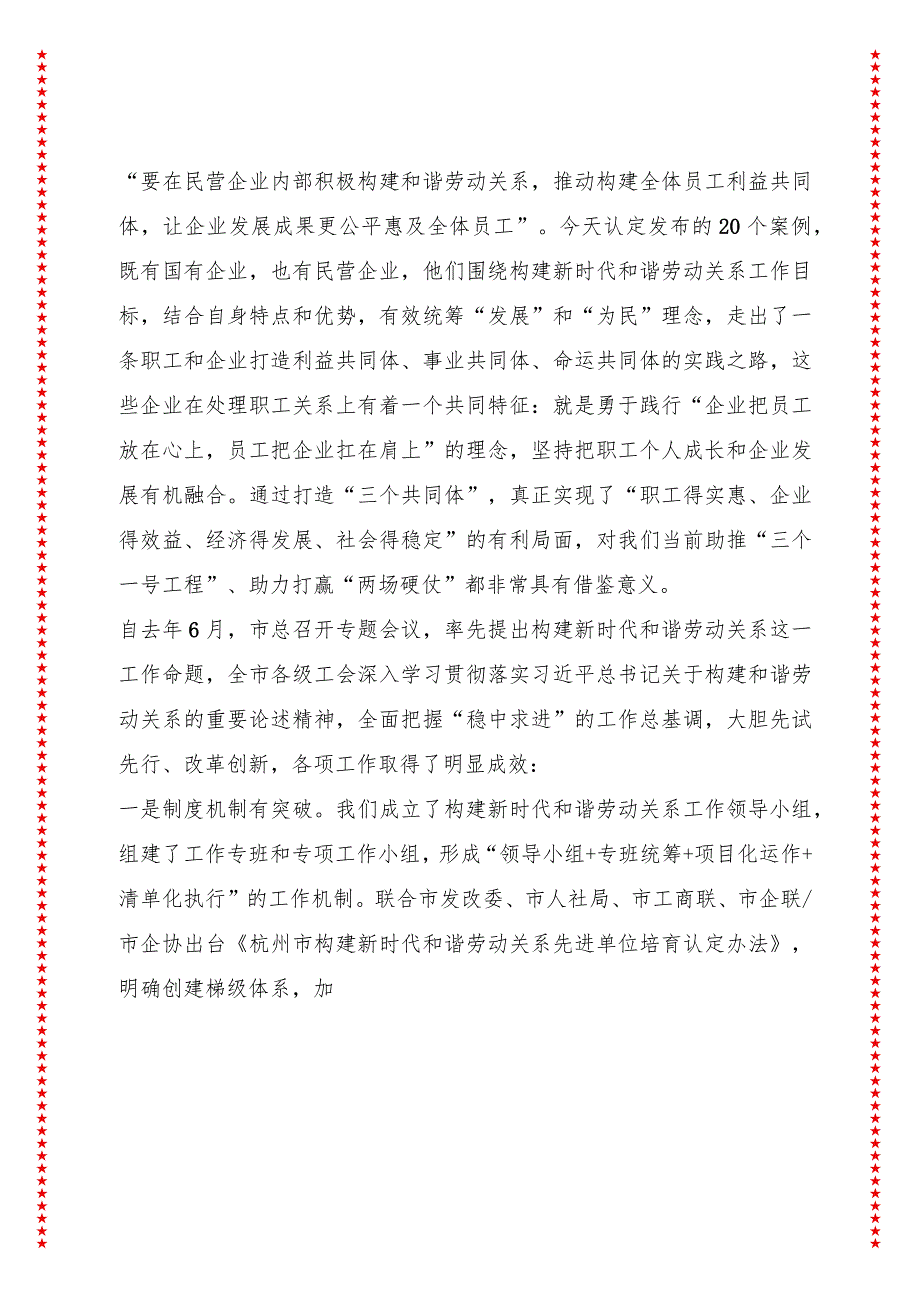 “要在民营企业内部积极构建和谐劳动关系，推动构建全体员工利益共同
体，让企业发展成果更公平惠及全体员工”。今天认定发布的 20 个案例，
既有国有企业，也有民营企业，他们围绕构建新时代和谐劳动关系工作目
标，结合自身特点和优势，有效统筹“发展”和“为民”理念，走出了一
条职工和企业打造利益共同体、事业共同体、命运共同体的实践之路，这
些企业在处理职工关系上有着一个共同特征：就是勇于践行“企业把员工
放在心上，员工把企业扛在肩上”的理念，坚持把职工个人成长和企业发
展有机融合。通过打造“三个共同体”，真正实现了“职工得实惠、企业
得效益、经济得发展、社会得稳定”的有利局面，对我们当前助推“三个
一号工程”、助力打赢“两场硬仗”都非常具有借鉴意义。
自去年 6 月，市总召开专题会议，率先提出构建新时代和谐劳动关系这一
工作命题，全市各级工会深入学习贯彻落实习近平总书记关于构建和谐劳
动关系的重要论述精神，全面把握“稳中求进”的工作总基调，大胆先试
先行、改革创新，各项工作取得了明显成效：
一是制度机制有突破。我们成立了构建新时代和谐劳动关系工作领导小组，
组建了工作专班和专项工作小组，形成“领导小组+专班统筹+项目化运作+
清单化执行”的工作机制。联合市发改委、市人社局、市工商联、市企联/
市企协出台《杭州市构建新时代和谐劳动关系先进单位培育认定办法》，
明确创建梯级体系，加